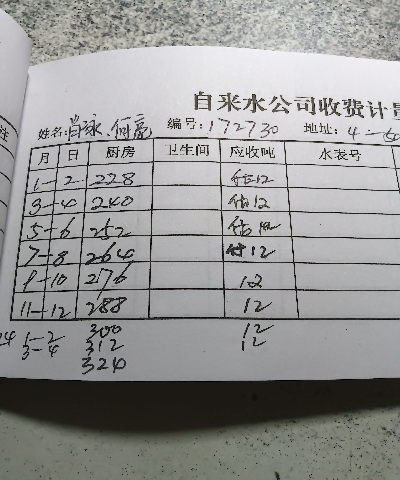 自来水公司收费计量
姓名: 肖泳、何亮 编号: 172730 地址: 4-50
月 日 厨房 卫生间 应收吨 水表号
1-2 228 估12
3-4 240 估12
5-6 252 估12
7-8 264 估12
9-10 276 12
11-12 288 12
24 1-2 300 12
3-4 312 12
324